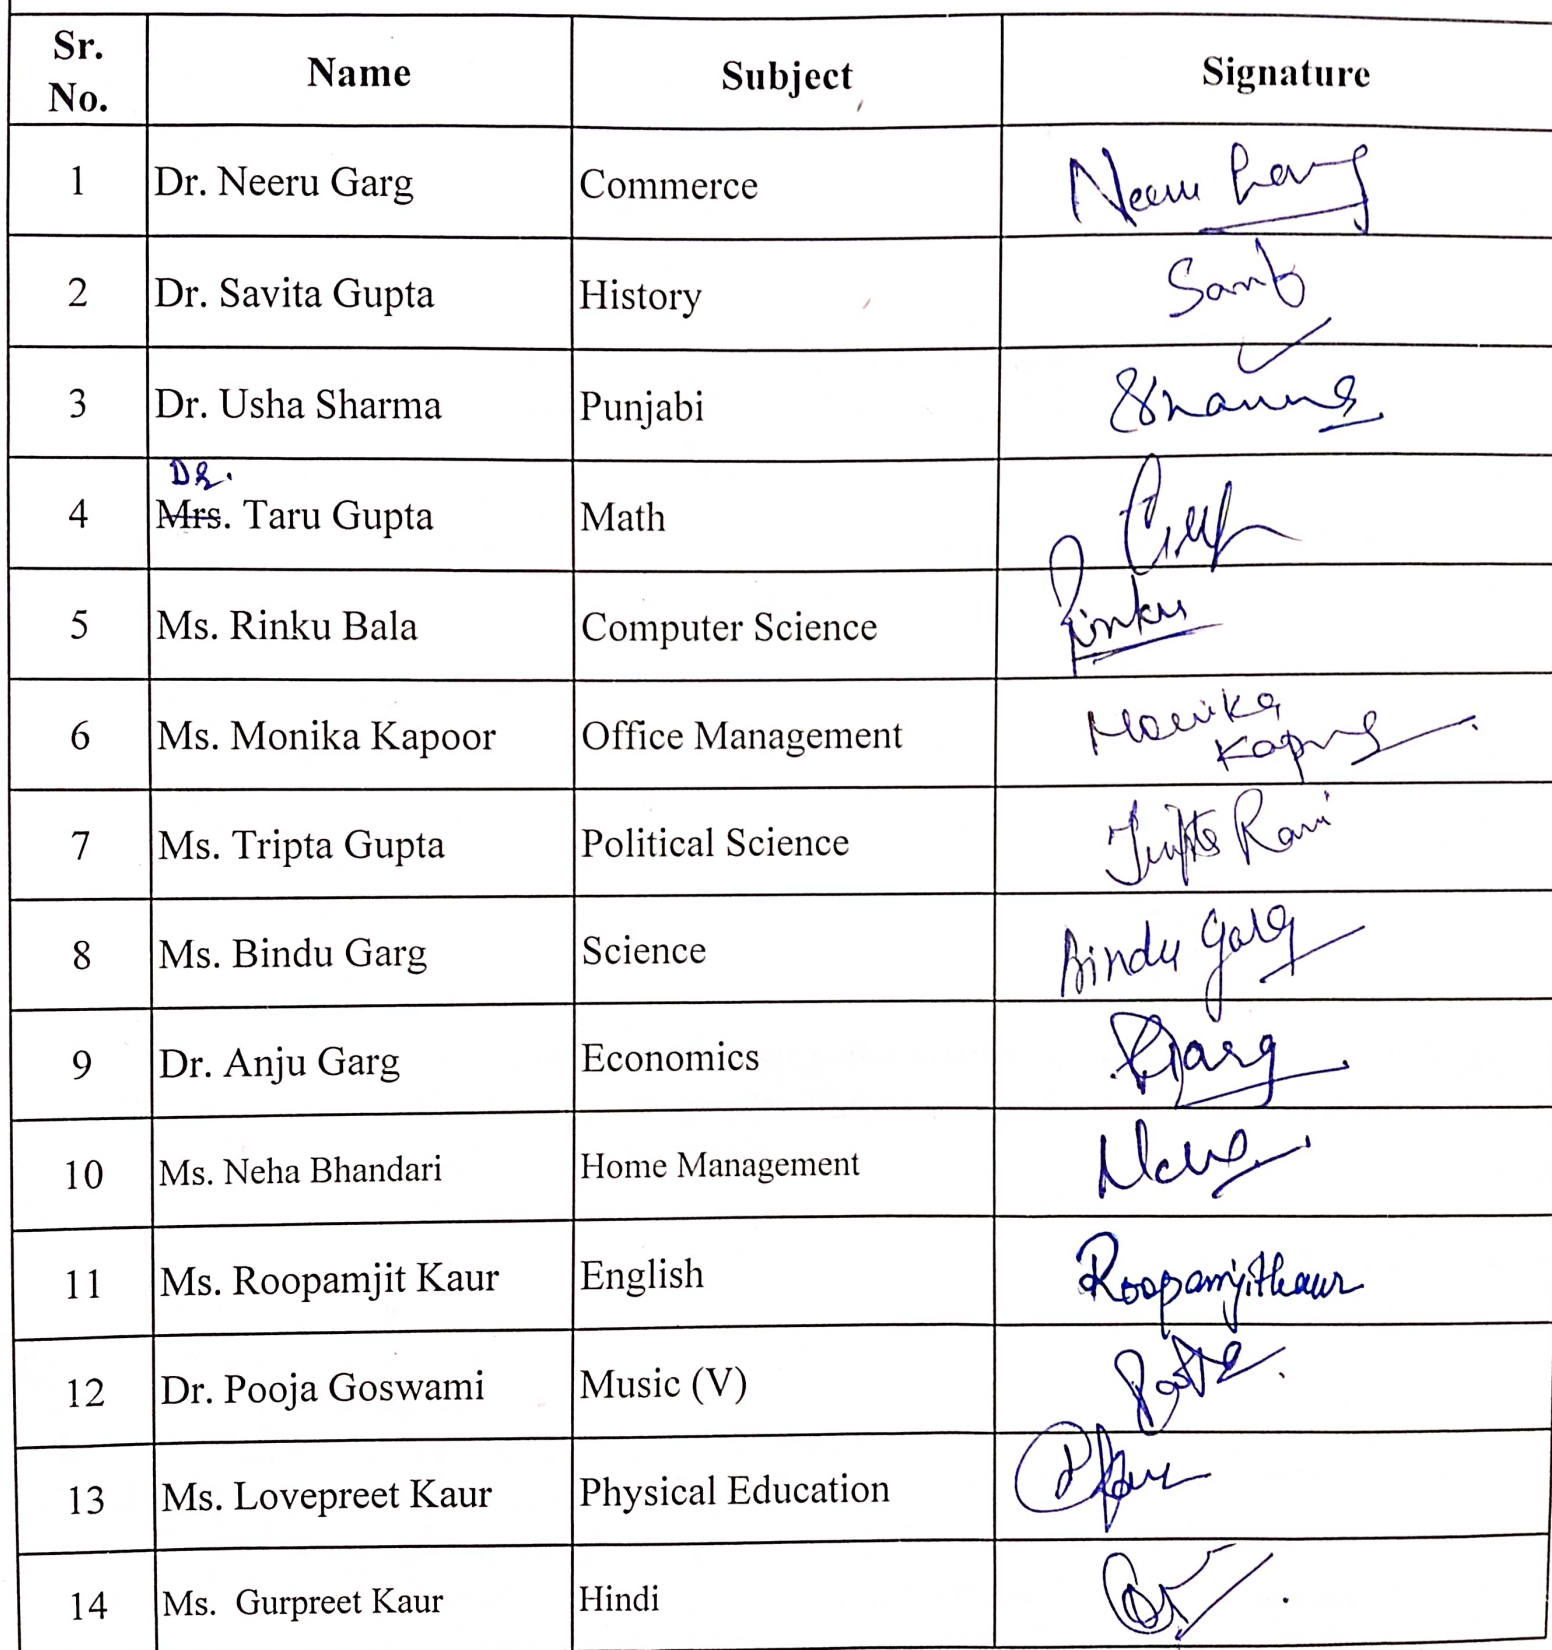 Sr. No. Name Subject Signature
1 Dr. Neeru Garg Commerce Neeru Garg
2 Dr. Savita Gupta History
3 Dr. Usha Sharma Punjabi
Dr.
4 Mrs. Taru Gupta Math
5 Ms. Rinku Bala Computer Science Rinku
6 Ms. Monika Kapoor Office Management Monika Kapoor
7 Ms. Tripta Gupta Political Science Tripta Rani
8 Ms. Bindu Garg Science Bindu Garg
9 Dr. Anju Garg Economics Garg
10 Ms. Neha Bhandari Home Management
11 Ms. Roopamjit Kaur English Roopamjit Kaur
12 Dr. Pooja Goswami Music (V)
13 Ms. Lovepreet Kaur Physical Education
14 Ms. Gurpreet Kaur Hindi